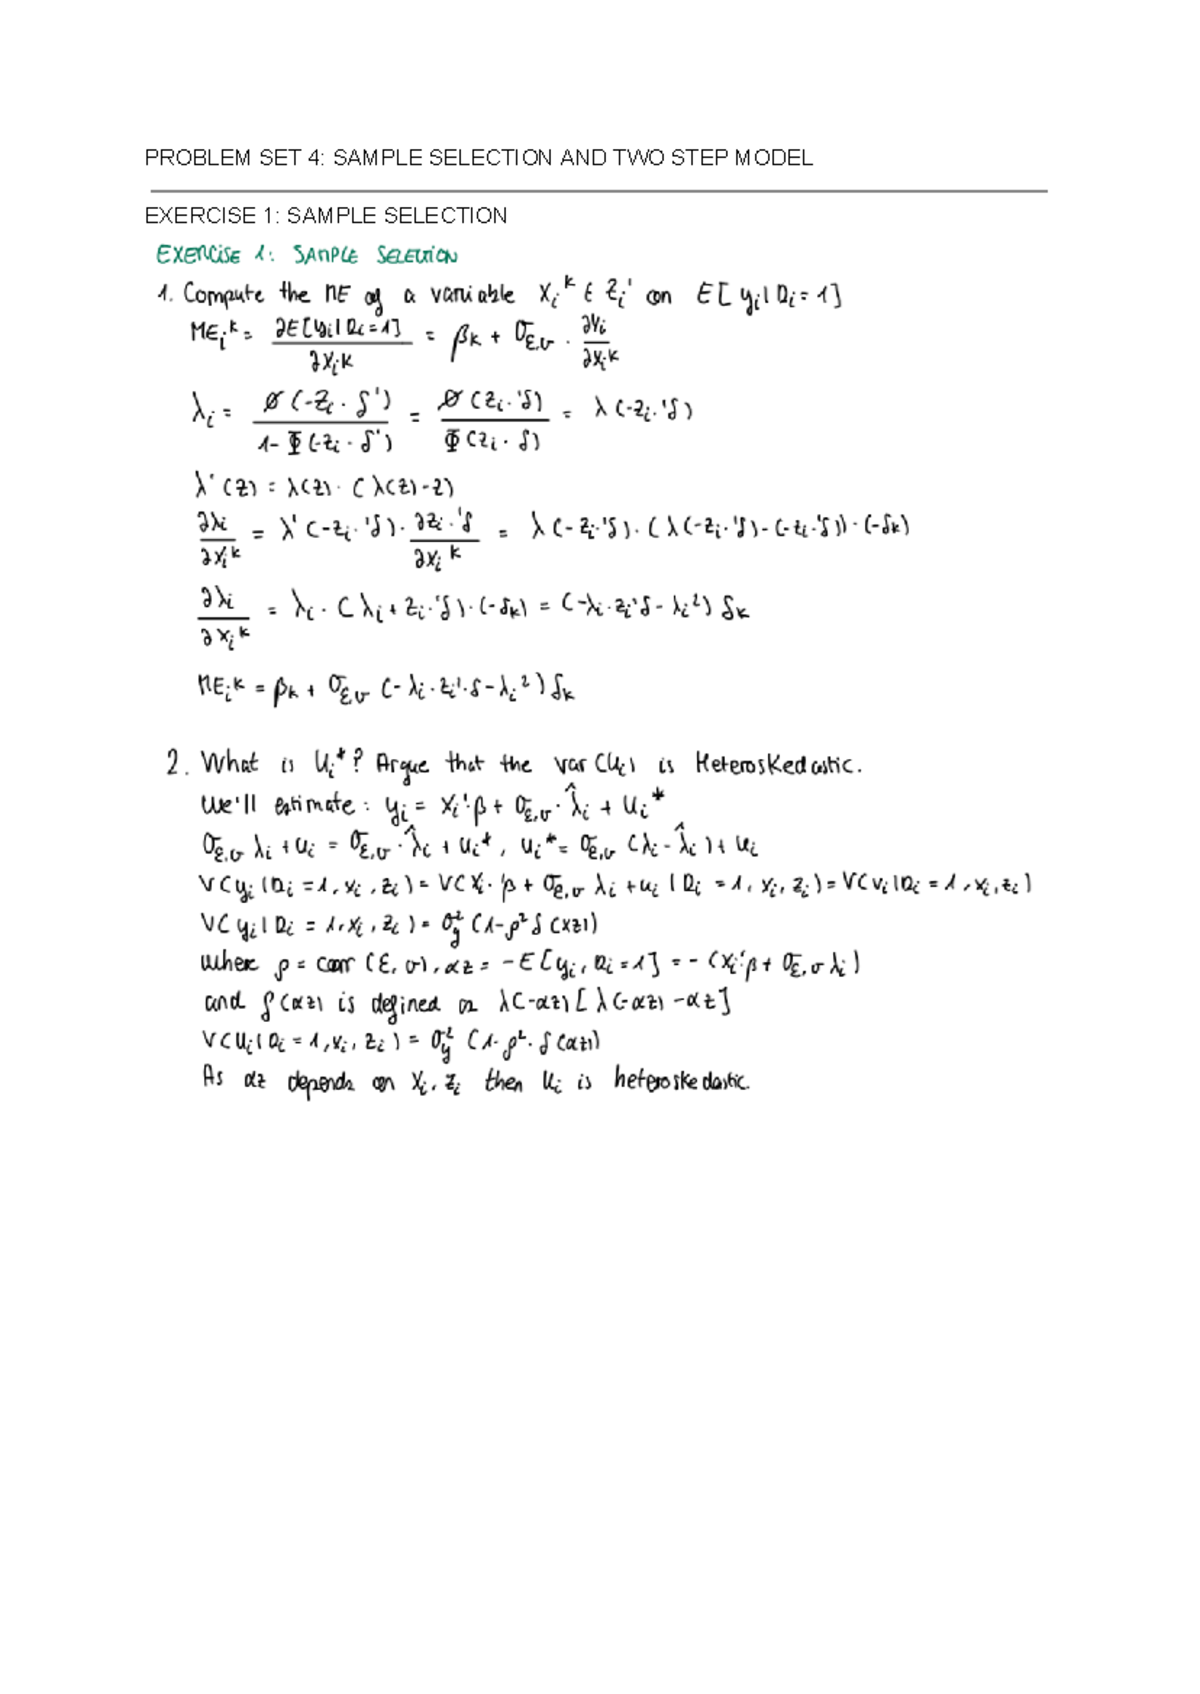 PROBLEM SET 4: SAMPLE SELECTION AND TWO STEP MODEL
EXERCISE 1: SAMPLE SELECTION
EXERCISE 1: SAMPLE SELECTION
1. Compute the ME of a variable Xᵢᵏ ∈ Zᵢ' on E[yᵢ|Dᵢ=1]
MEᵢᵏ = ∂E[yᵢ|Dᵢ=1] / ∂Xᵢk = βk + σε,v · ∂Vᵢ / ∂Xᵢk
λᵢ = ø(-Zᵢ·δ') / 1-Φ(-zᵢ·δ') = ø(zᵢ·'δ) / Φ(zᵢ·δ) = λ(-zᵢ·'δ)
λ'(z) = λ(z)·(λ(z)-z)
∂λᵢ / ∂Xᵢᵏ = λ'(-zᵢ·'δ)·∂zᵢ·'δ / ∂Xᵢᵏ = λ(-zᵢ·'δ)·(λ(-zᵢ·'δ)-(-zᵢ·'δ))·(-δk)
∂λᵢ / ∂Xᵢᵏ = λᵢ·(λᵢ+zᵢ·'δ)·(-δk) = (-λᵢ·zᵢ'δ-λᵢ²)δk
MEᵢᵏ = βk + σε,v (-λᵢ·zᵢ'·δ-λᵢ²)δk
2. What is Uᵢ*? Argue that the var(Uᵢ) is Heteroskedastic.
We'll estimate: yᵢ = Xᵢ'β + σε,v·λ̂ᵢ + Uᵢ*
σε,v λᵢ + uᵢ = σε,v·λ̂ᵢ + uᵢ*, uᵢ* = σε,v (λᵢ-λ̂ᵢ) + uᵢ
V(yᵢ|Dᵢ=1, xᵢ, zᵢ) = V(Xᵢ·'β + σε,v λᵢ + uᵢ | Dᵢ = 1, xᵢ, zᵢ) = V(vᵢ|Dᵢ=1, xᵢ, zᵢ)
V(yᵢ|Dᵢ = 1, xᵢ, zᵢ) = σ²y (1-ρ²δ(xz))
where ρ = corr (ε, v), αz = -E[yᵢ, Dᵢ=1] = -(xᵢ'β + σε,v λᵢ)
and δ(αz) is defined as λ(-αz)[λ(-αz)-αz]
V(uᵢ|Dᵢ=1, xᵢ, zᵢ) = σ²y (1-ρ²·δ(αz))
As αz depends on Xᵢ, zᵢ then Uᵢ is heteroskedastic.